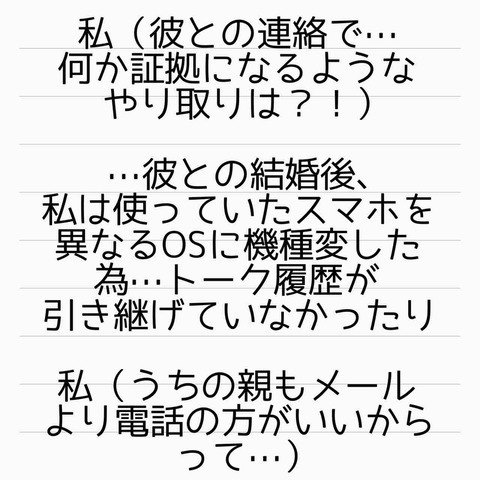 私（彼との連絡で…
何か証拠になるような
やり取りは？！）
…彼との結婚後、
私は使っていたスマホを
異なるOSに機種変した
為…トーク履歴が
引き継げていなかったり
私（うちの親もメール
より電話の方がいいから
って…）